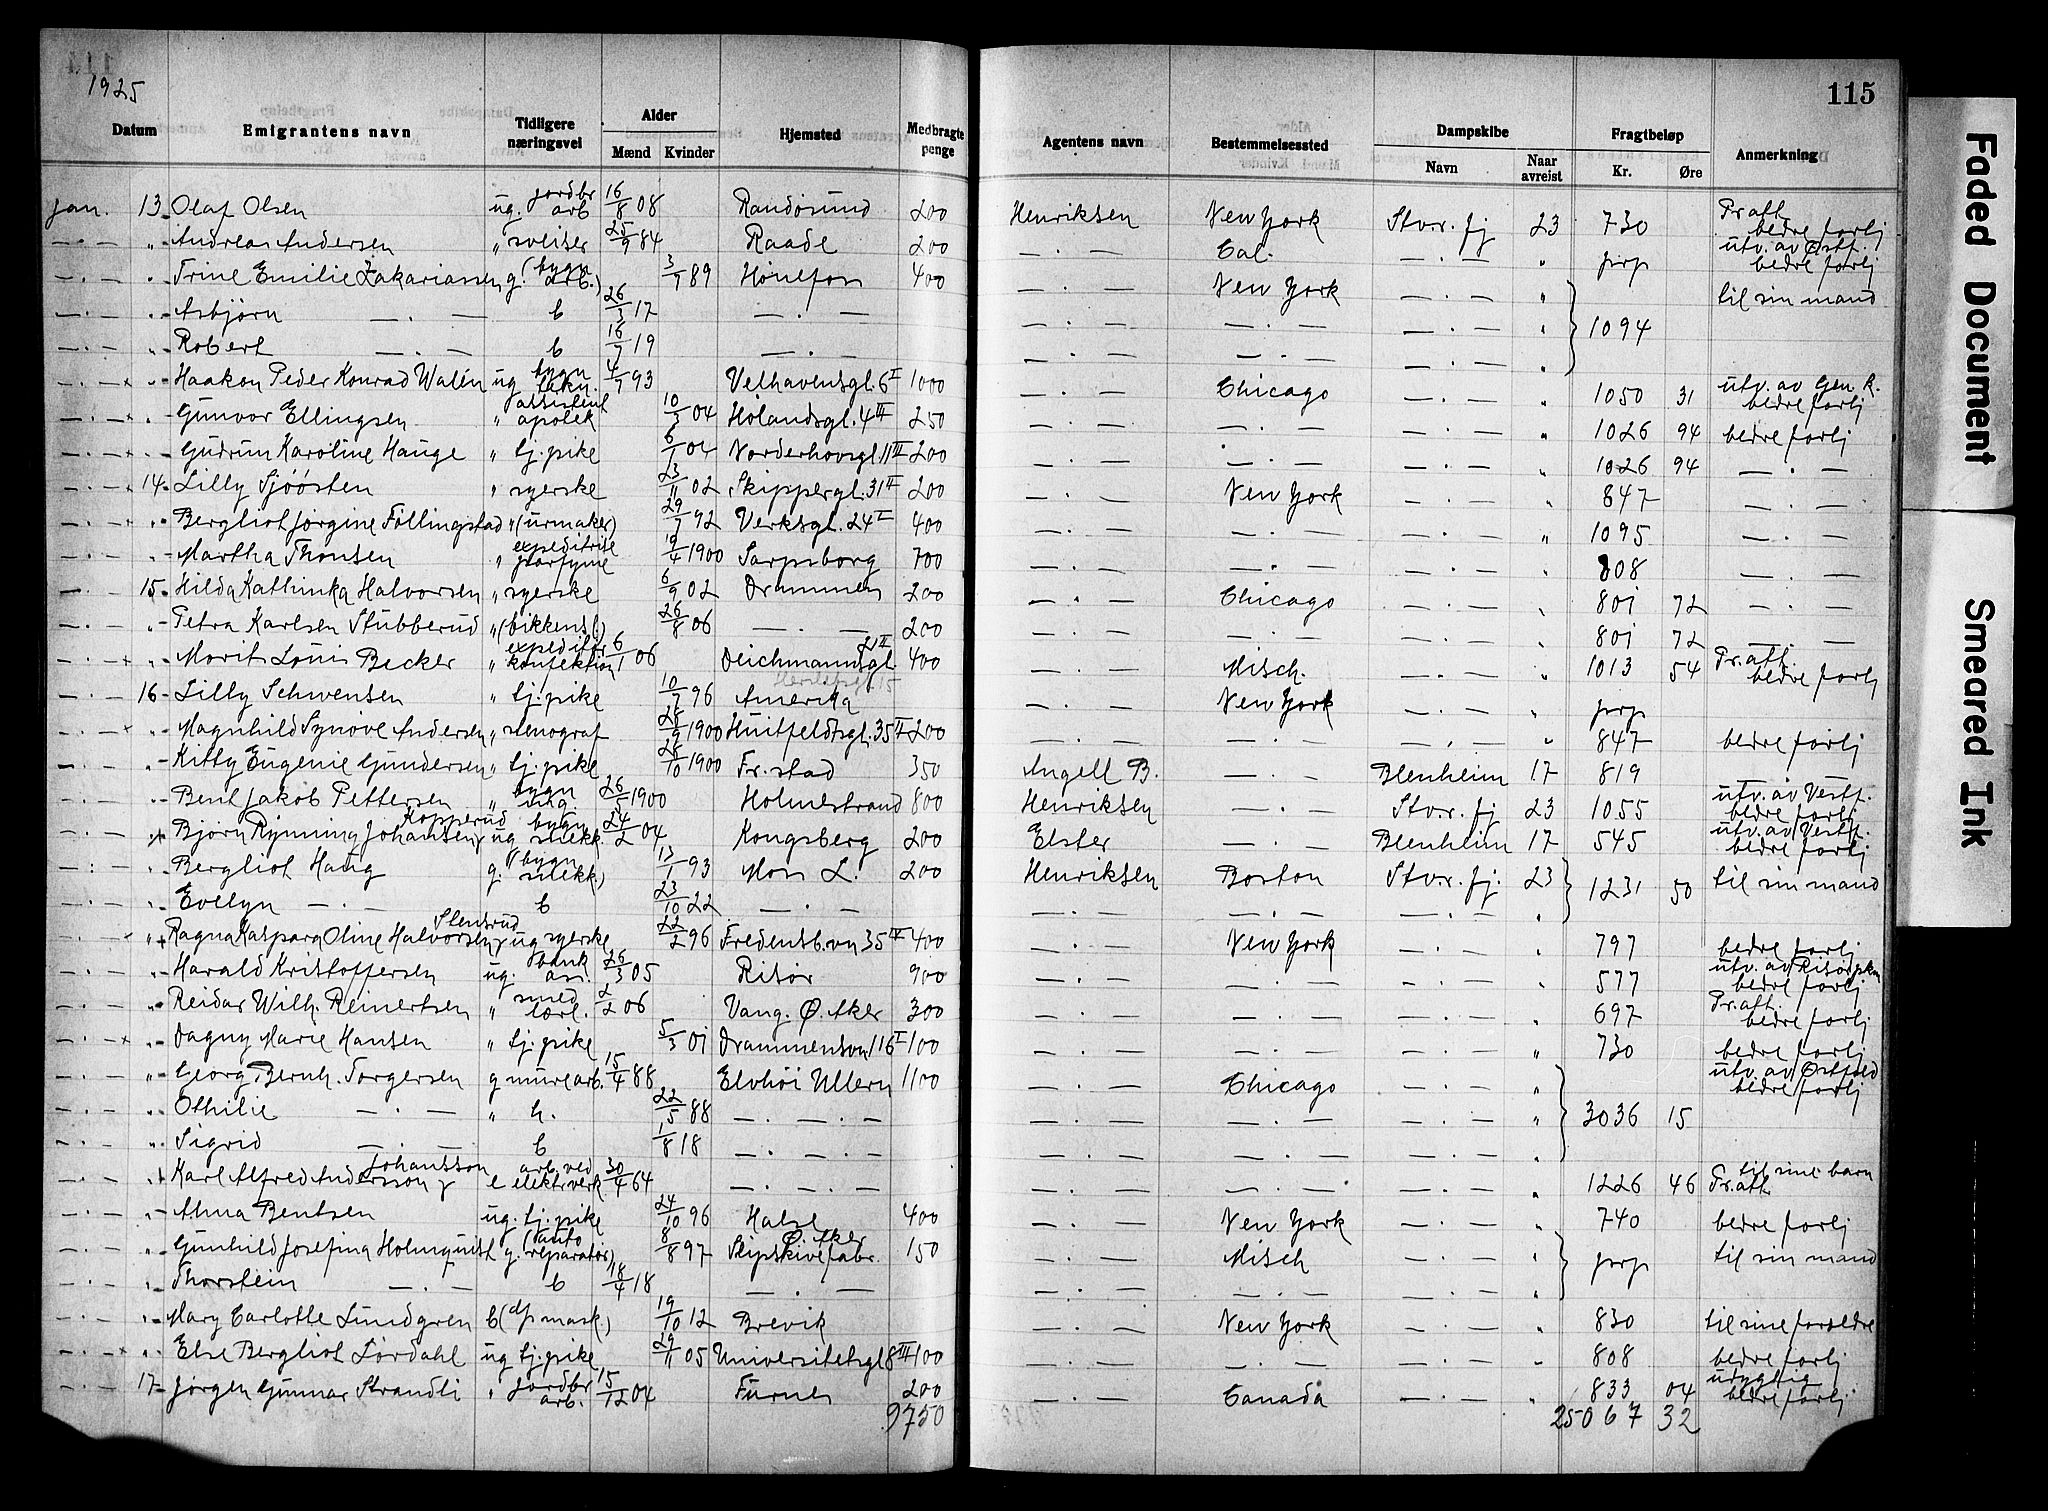 1925
115
Datum Emigrantens navn Tidligere næringsvei Alder Mænd Kvinder Hjemsted Medbragte penge Agentens navn Bestemmelsessted Dampskibe Navn Naar avreist Fragtbeløp Kr. Øre Anmerkning
jan. 13. Olaf Olsen ug. jordbr arb 16/8 08 Randøsund 200 Henriksen New York Stv.r. fj 23 730 Pr.att. bedre forlj
— · — " Andreas Andersen " sveiser 25/9 84 Raade 200 — · — Cal. — · — " prp utv. av Østf. bedre forlj
— · — " Trine Emilie Zakariassen g. (bygn arb.) 3/7 89 Hønefos 400 — · — New York — · — " til sin mand
— · — " Asbjørn — · — b 26/3 17 — · — — · — — · — — · — " 1094
— · — " Robert — · — b 16/7 19 — · — — · — — · — — · — "
— · — " Haakon Peder Konrad Walén ug bygn tekn. 4/7 93 Velhavensgt. 6 I 1000 — · — Chicago — · — " 1050 31 utv. av Gen. K. bedre forlj
— · — " Gunvor Ellingsen " assistent apotek 10/3 04 Hølandsgt. 4 III 250 — · — — · — — · — " 1026 94 bedre forlj
— · — " Gudrun Karoline Hauge " tj. pike 6/1 04 Norderhovsgt 11 III 200 — · — — · — — · — " 1026 94 — · —
— · — 14. Lilly Sjøøsten " syerske 23/11 02 Skippergt. 31 II 200 — · — New York — · — " 847 — · —
— · — " Bergliot Jørgine Føllingstad " (urmaker) 29/7 92 Verksgt. 24 I 400 — · — — · — — · — " 1095 — · —
— · — " Martha Thonsen " expeditrise parfyme 19/4 1900 Sarpsborg 700 — · — — · — — · — " 808 — · —
— · — 15. Hilda Kathinka Halvorsen " syerske 6/9 02 Drammen 200 — · — Chicago — · — " 801 72 — · —
— · — " Petra Karlsen Stubberud " 26/8 06 — · — 200 — · — — · — — · — " 801 72 — · —
— · — " Morits Louis Becker " expeditør konfektion 6/1 06 Deichmannsgt. 21 II 400 — · — Misch. — · — " 1013 54 Pr.att. bedre forlj
— · — 16. Lilly Schwensen " tj. pike 10/7 96 Amerika — · — New York — · — " prp
— · — " Magnhild Synøve Andersen " stenograf 1900 Huitfeldtsgt. 35 II 200 — · — — · — — · — " 847 bedre forlj
— · — " Kitty Eugenie Gundersen " tj. pike 28/10 1900 Fr.stad 350 Angell B. — · — Blenheim 17 819
— · — " Bent Jakob Pettersen " bygn ing. 26/5 1900 Holmestrand 800 Henriksen — · — Stv.r. fj 23 1055 utv. av Vestf. bedre forlj
— · — " Bjørn Rynning Johansen Kopperud ug bygn snekk. 24/2 04 Kongsberg 200 Elster — · — Blenheim 17 545 utv. av Vestf. bedre forlj
— · — " Bergliot Haug g. (bygn snekk) 13/1 93 Moss L. 200 Henriksen Boston Stv.r. fj. 23 1231 50 til sin mand
— · — " Evelyn — · — b 23/10 22 — · — — · — — · — — · — "
— · — " Ragna Kaspara Oline Halvorsen Stensrud ug syerske 22/2 96 Fredensb.vn 35 IV 400 — · — New York — · — " 797 bedre forlj
— · — " Harald Kristoffersen ug. bank ass. 26/3 05 Risør 900 — · — — · — — · — " 577 utv. av Risør pkm bedre forlj
— · — " Reidar Wilh. Reinertsen " smed lærl. 2/2 06 Vang. Ø. Aker 300 — · — — · — — · — " 697 Pr.att. bedre forlj
— · — " Dagny Marie Hansen " tj. pike 5/3 01 Drammensvn 116 I 100 — · — — · — — · — " 730 bedre forlj
— · — " Georg Bernh. Torgersen g murearb. 15/4 88 Elvhøi Ullern 1100 — · — Chicago — · — " utv. av Østfold bedre forlj
— · — " Othilie — · — " h. 22/5 88 — · — — · — — · — — · — " 3036 15
— · — " Sigrid — · — b 1/8 18 — · — — · — — · — — · — "
— · — " Karl Alfred Andersson Johansson e arb. ved elektr.verk 30/4 64 — · — — · — — · — — · — " 1226 46 til sine barn Pr.att.
— · — " Alma Bentsen ug. tj. pike 24/10 96 Halse 400 — · — New York — · — " 740 bedre forlj
— · — " Gunhild Josefina Holmquist g. (auto reparatør) 8/8 97 Slipskivefabr. Ø. Aker 150 — · — Misch — · — " prp til sin mand
— · — " Thorstein — · — b 18/4 18 — · — — · — — · — — · — "
— · — " Mary Carlotte Lundgren b (dp mask.) 19/10 12 Brevik — · — New York — · — " 830 til sine foreldre
— · — " Else Bergliot Lørdahl ug tj. pike 29/11 05 Universitetsgt 8 III 100 — · — — · — — · — " 808 bedre forlj
— · — 17. Jørgen Gunnar Strandli " jordbr arb. 15/12 04 Furnes 200 — · — Canada — · — " 833 04 udygtig bedre forlj
9750 25067 32
Faded Document
Smeared Ink